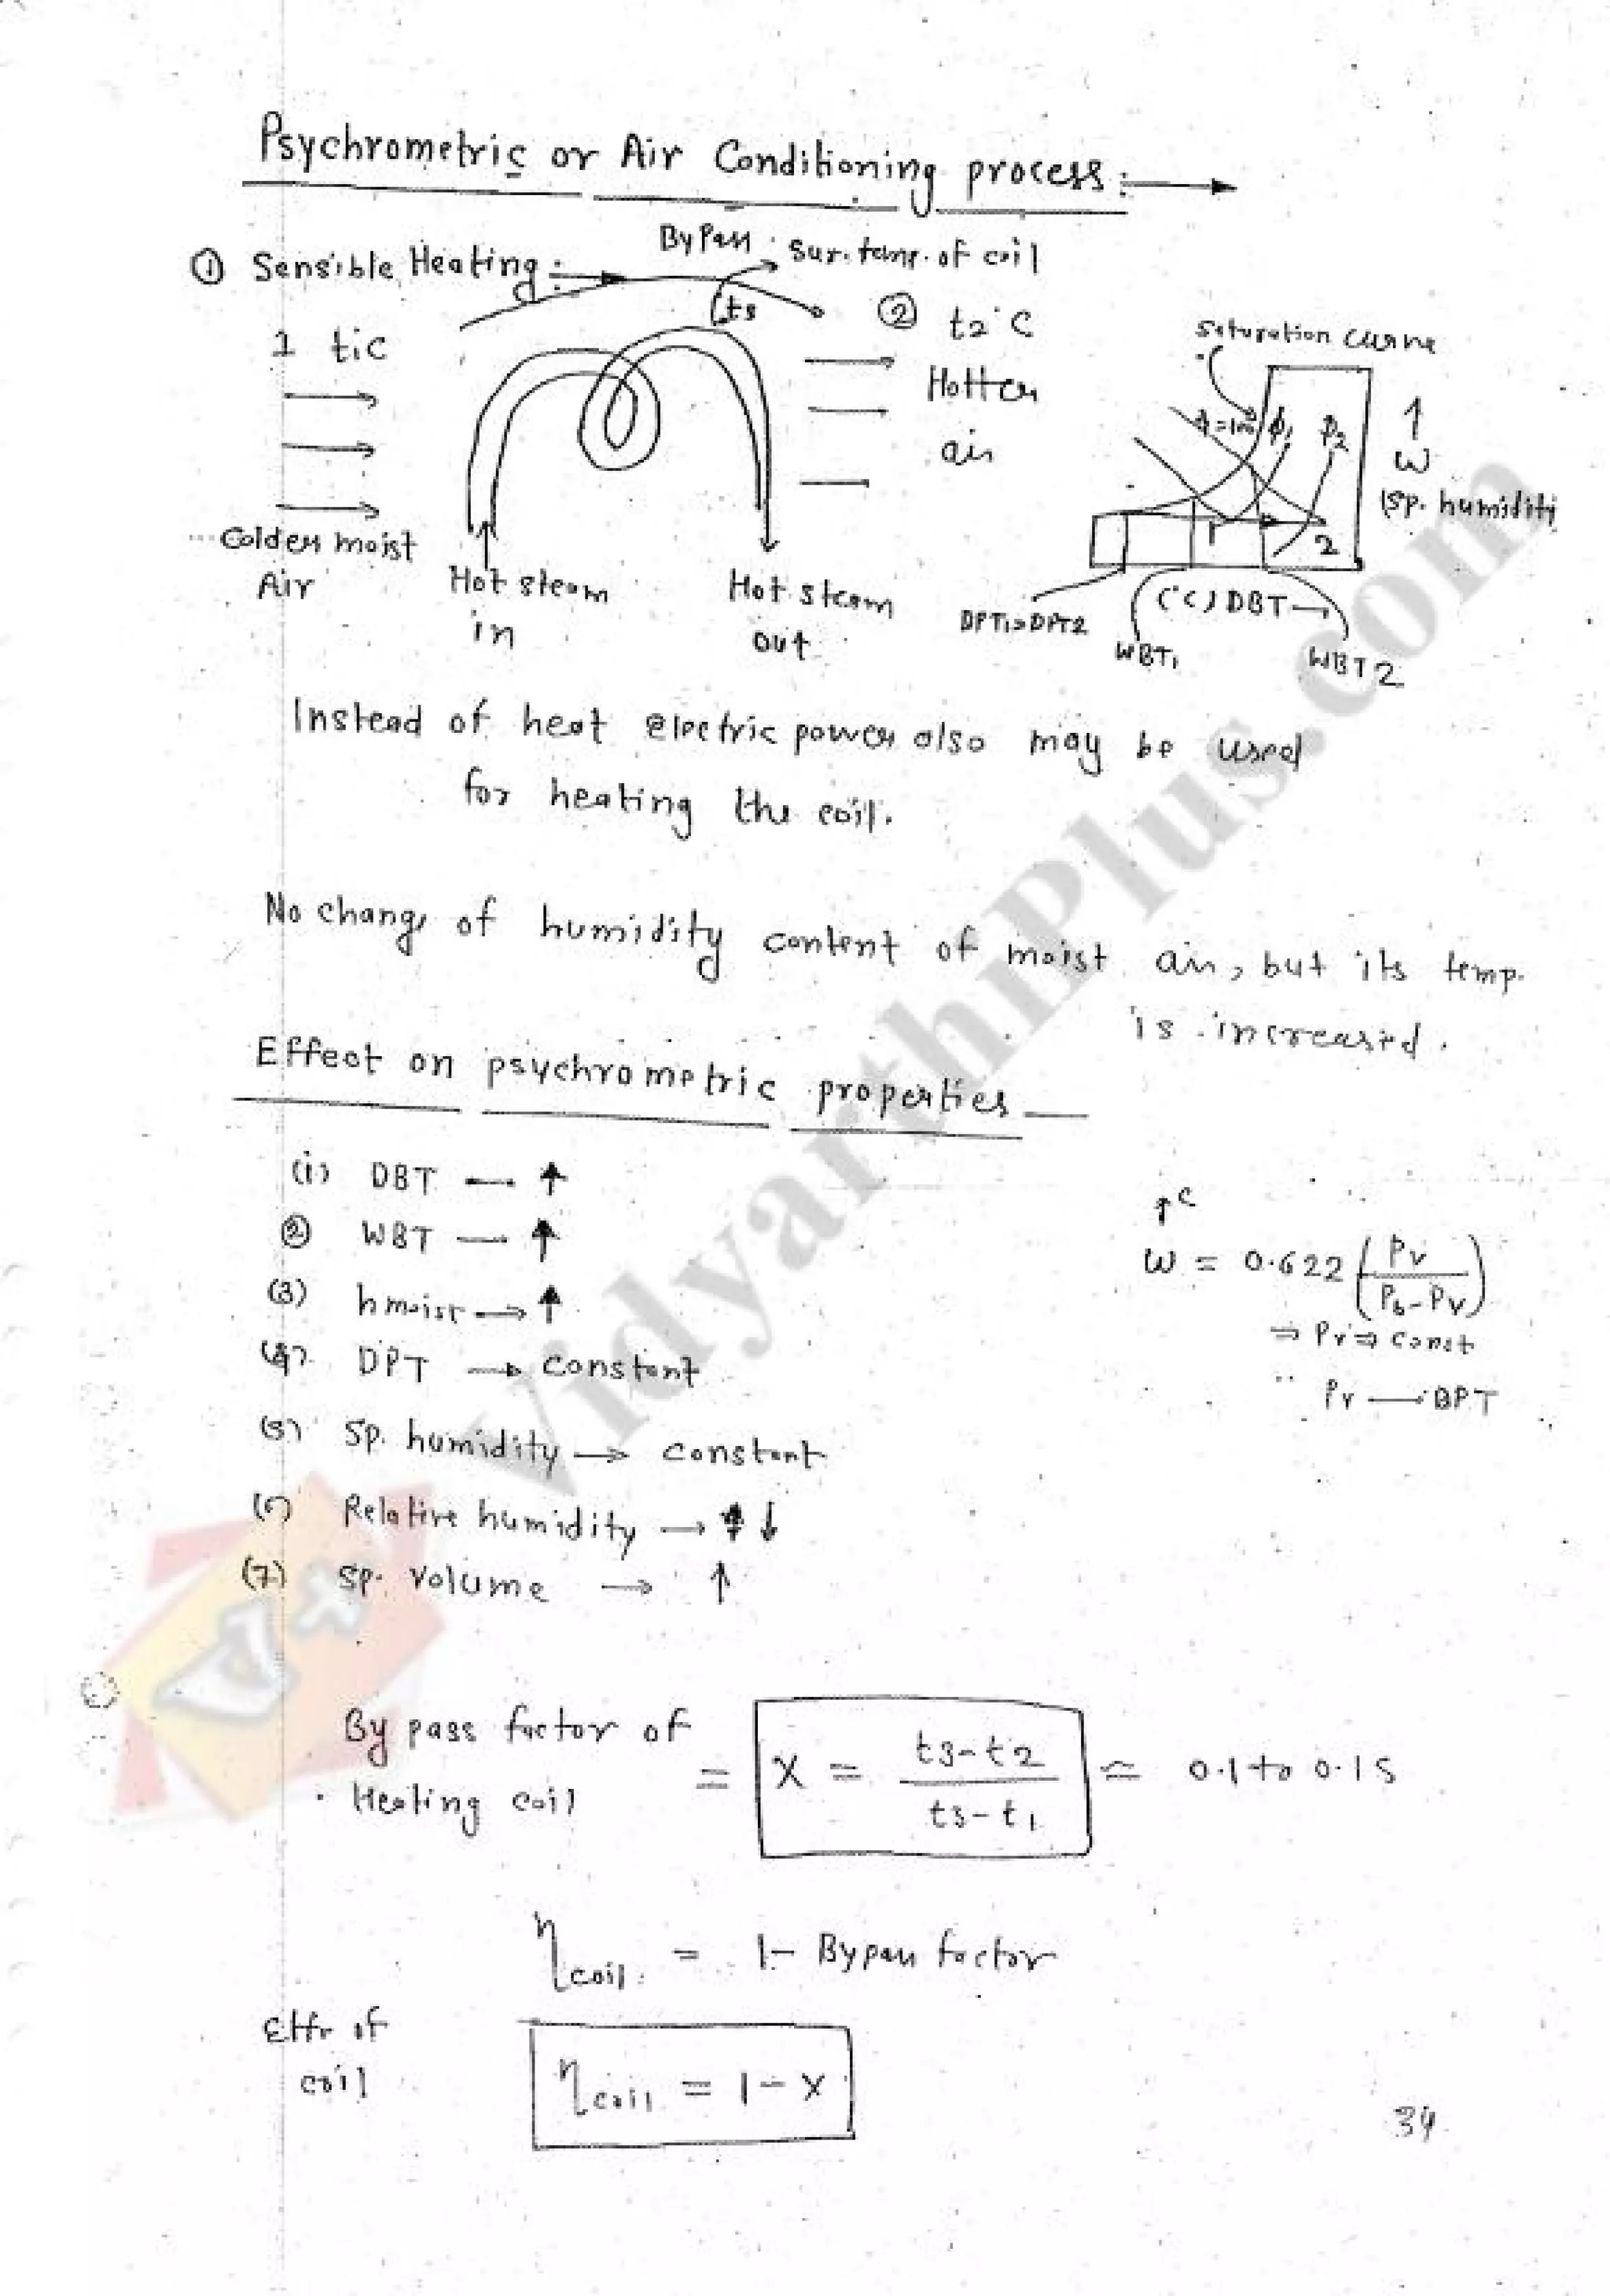 Psychrometric or Air Conditioning process:
① Sensible Heating:
ByPass
Sur. temp. of coil
ts
1 t1c
② t2°C
Hotter
air
Colder moist
Air
Hot steam
in
Hot steam
out
Saturation curve
ϕ=100
ϕ1
ϕ2
1
2
↑
W
(Sp. humidity
DPT1=DPT2
(°C) DBT
WBT1
WBT2
Instead of heat electric power also may be used
for heating the coil.
No change of humidity content of moist air, but its temp.
is increased.
Effect on psychrometric properties
(i) DBT — ↑
② WBT — ↑
(3) hmoist → ↑
(4) DPT → constant
(5) Sp. humidity → constant
(6) Relative humidity → ↓
(7) Sp. Volume → ↑
↑c
W = 0.622 (Pv/Pb-Pv)
⇒ Pv ⇒ const
Pv — DPT
By pass factor of
Heating coil
= X = ts-t2/ts-t1 = 0.1 to 0.15
ηcoil = 1- Bypass factor
Effe of
coil
ηcoil = 1-X
34
VidyarthiPlus.com
V+